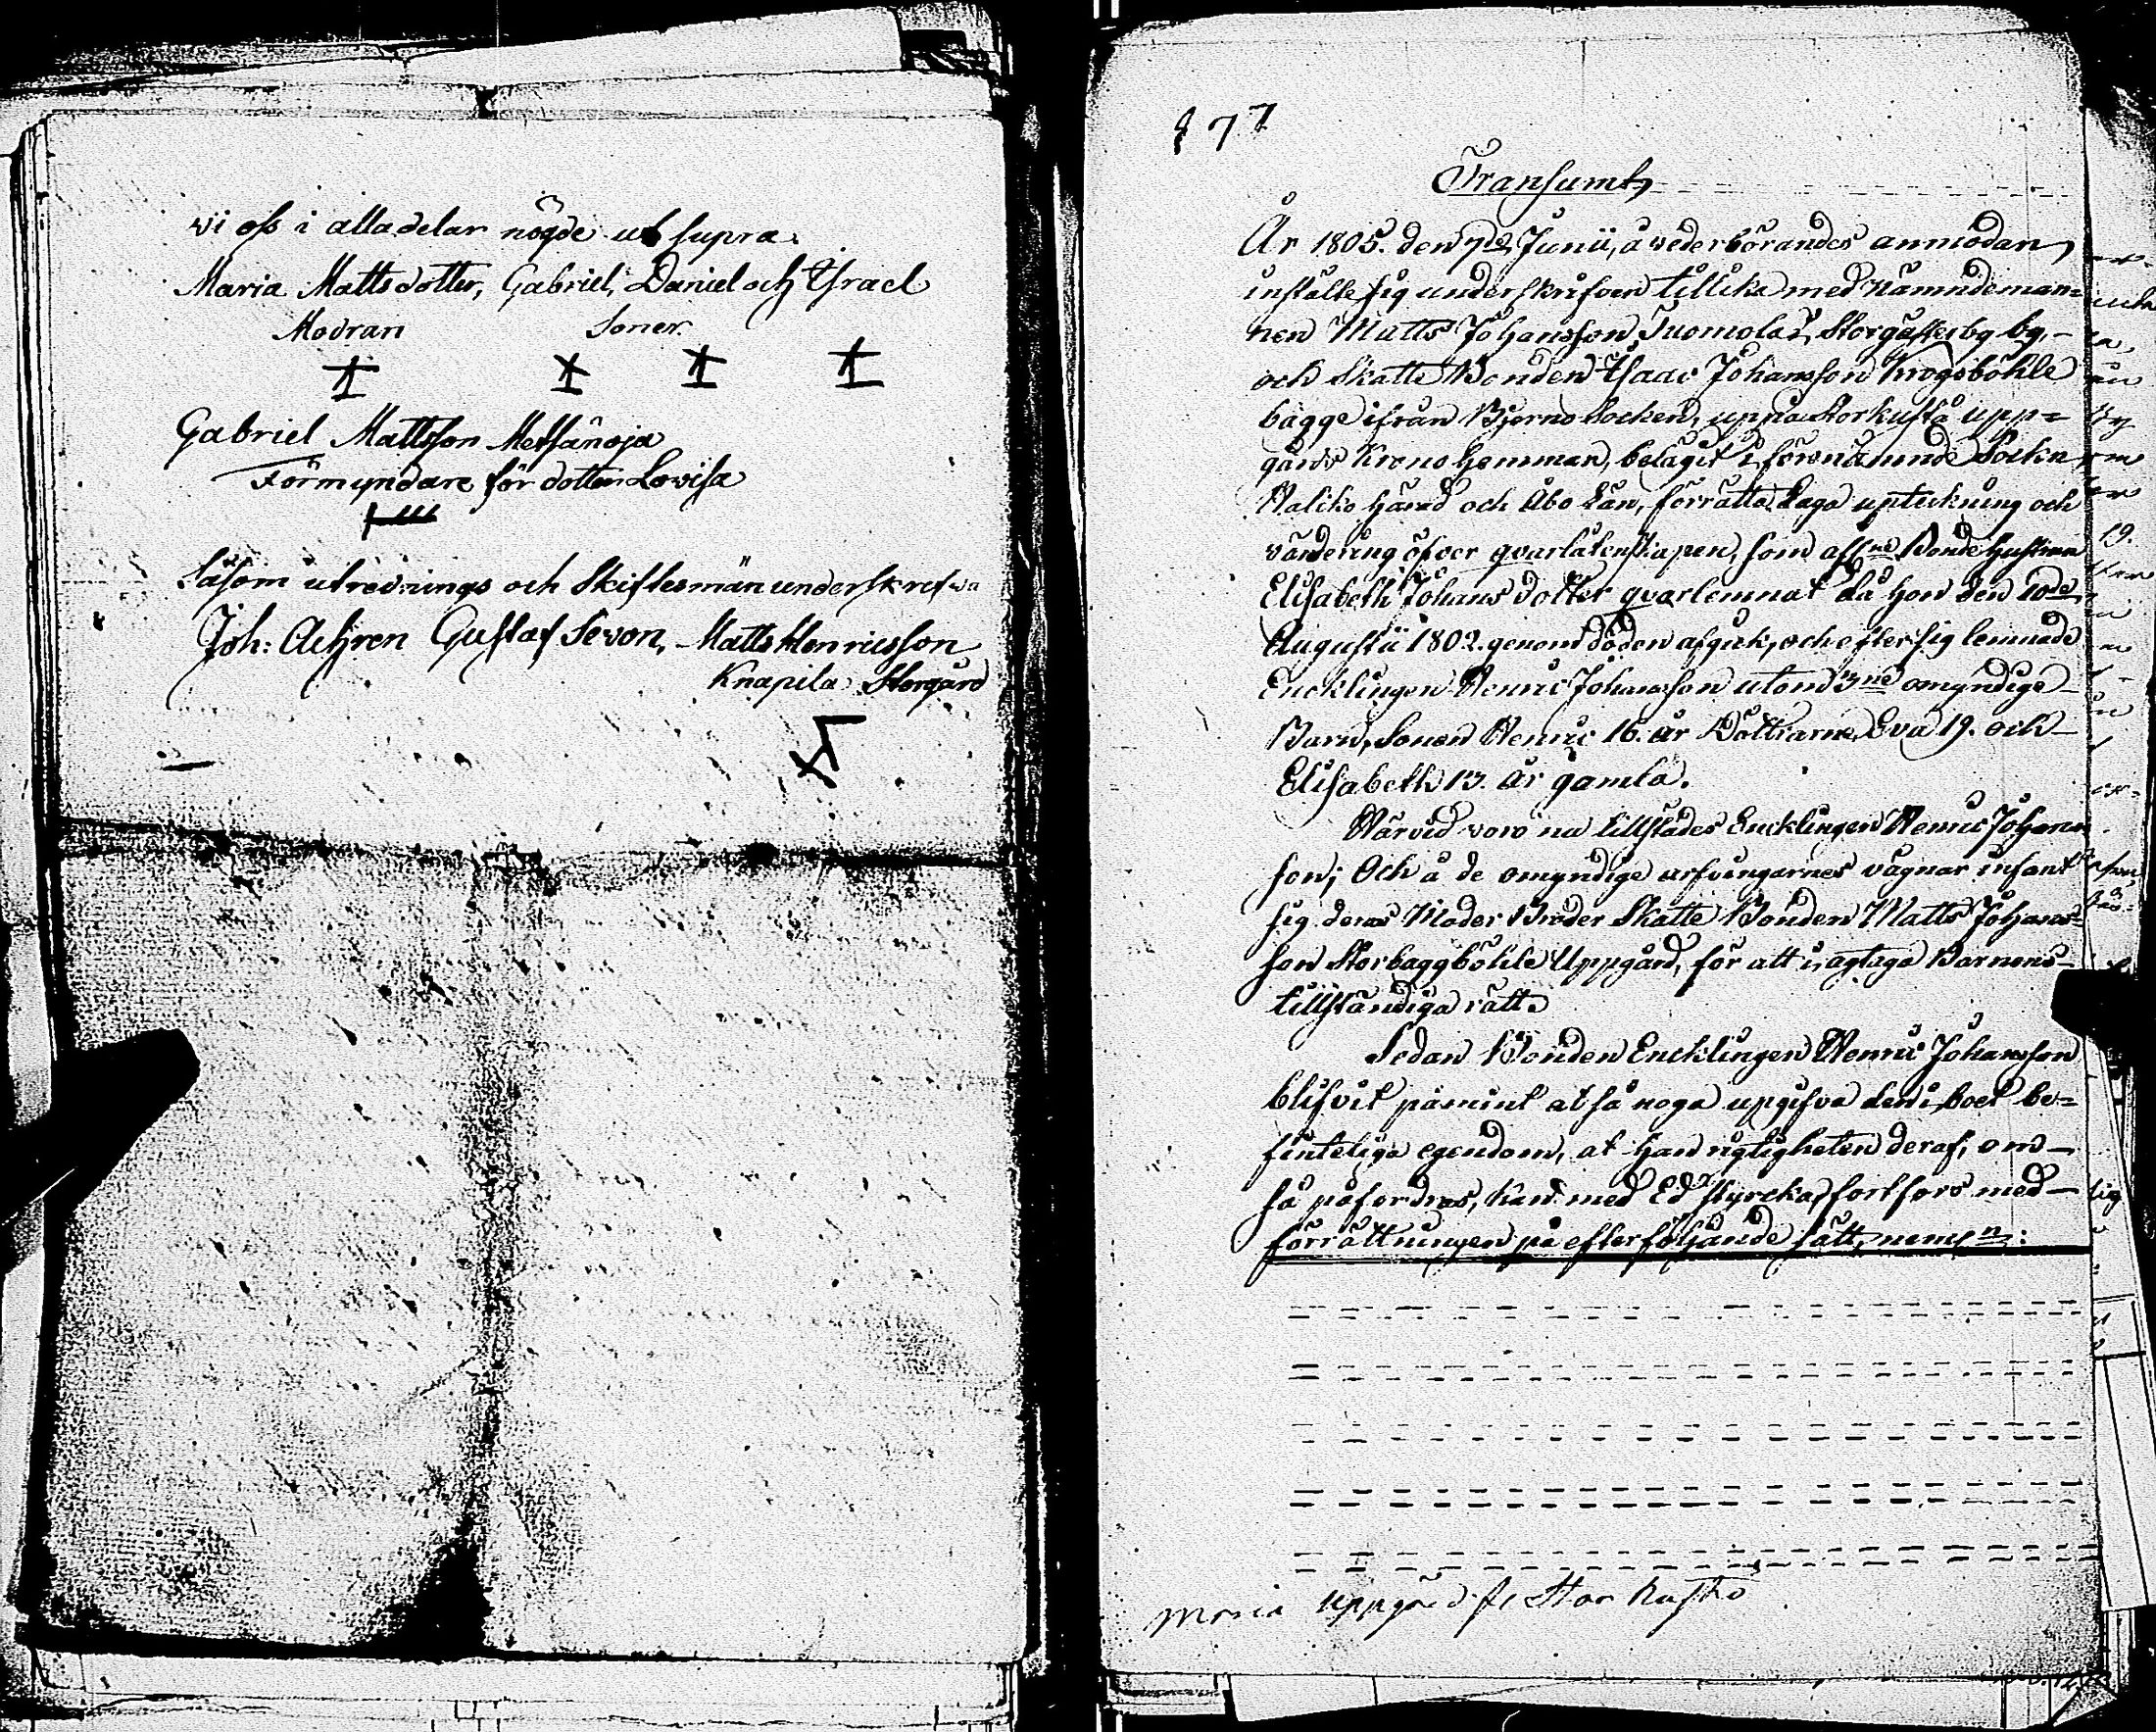 vi oss i alla delar nögde ut supra.
Maria Mattsdotter, Gabriel, Daniel och Israel
Modran Söner.
Gabriel Mattsson Metsänoja
Förmyndare för dottren Lovisa
Såsom utrednings och Skiftesmän underskrefva
Joh: Achren Gustaf Sevon, Matts Henricsson
Knapila Storgård
177
Transumt,
År 1805. den 7de Junii, å vederbörandes anmodan,
instälte sig underskrifven tillika med Nämndeman=
nen Matts Johansson Tuomola i by,
och Skatte Bonden Isaac Johansson Krogsböhle
bägge ifrån Bjerno Socken, uppå Storkuskå upp=
gårds Krono hemman, belägit i förenämnde Sockn
Haliko härad och Åbo Län, förrätta Laga upteckning och
värdering öfver qvarlåtenskapen, som afl:ne Bonde hustrun
Elisabeth Johans dotter qvarlemnat då hon den 10de
Augustii 1802. genom döden afgick, och efter sig lemnade
Encklingen Henric Johansson utom 3ne omyndige
Barn, Sonen Henric 16. år Döttrarne Eva 19. och
Elisabeth 13. år gamla.
Härvid voro nu tillstädes Encklingen Henric Johans
son; Och å de omyndige arfvingarnes vägnar infant
sig deras Moder Broder Skatte Bonden Matts Johans=
son Storbaggböhle Uppgård, för att i, agtaga Barnens
tillständiga rätt.
Sedan Bonden Encklingen Henric Johansson
blifvit påmint at så noga upgifva den i boet be=
finteliga egendom, at han rigtigheten deraf, om
så påfordras, kan med Ed styrcka, fortfors med
förrättningen på efterföljande sätt, neml:n:
uppgård fr Stor Kusko